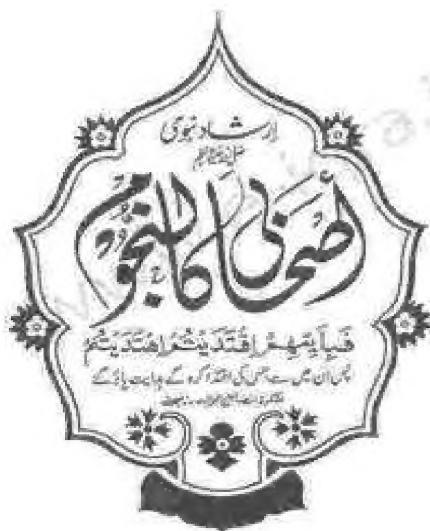 ارشاد نبوی
صلی اللہ علیہ وسلم
أصحابي كالنجوم
فَبِأَيِّهِمُ اقْتَدَيْتُمُ اهْتَدَيْتُمْ
پس ان میں سے جس کی اقتدا کرو گے ہدایت پاؤ گے